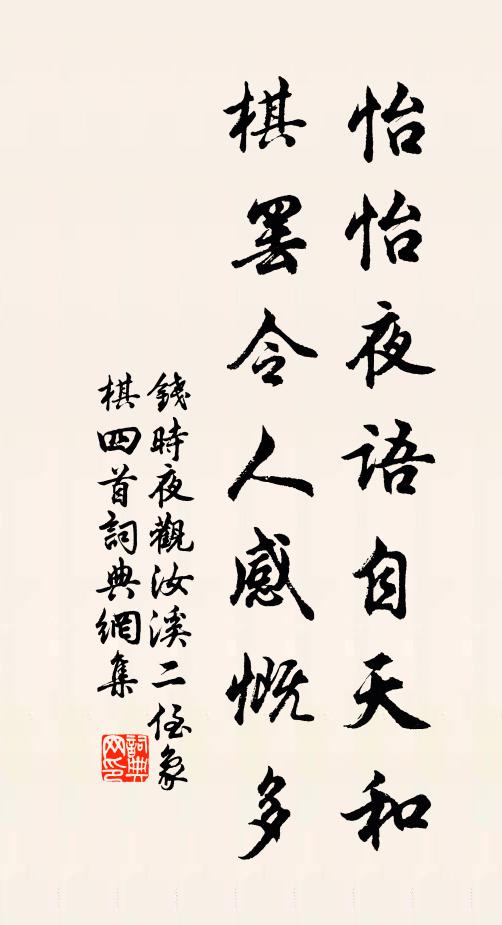 怡怡夜語自天和
棋罷令人感慨多
錢時夜觀汝溪二侄象
棋四首詞典網集
詞典
网印